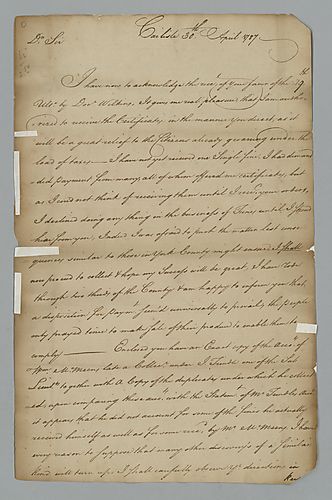 Carlisle 30th April 1787
Dr. Sir
I have now to acknowledge the rect. of your favor of the 29th
Ulto. by Dor. Wilkins, It gives me real pleasure that I am autho-
rized to receive the Certificates in the manner you direct, as it
will be a great relief to the Citizens already groaning under the
load of taxes — I have not yet received one Single fine, I had deman-
ded payment from many, all of whom offered me certificates, but
as I could not think of receiving them until I recd. your orders,
I declined doing any thing in the business of Fines, until I should
hear from you, Indeed I was afraid to push the matter lest conse-
quences similar to those in York County might ensue. I shall
now proceed to collect & hope my Success will be great, I have rode
through two thirds of the County & am happy to inform you that
a disposition for paymt. seem'd universally to prevail, the people
only prayed time to make sale of their produce to enable them to
comply — Enclosed you have an Exact copy of the Acct. of
Wm. M. Means late a Collector under J. Tindle one of the Sub
Lieuts. together with a Copy of the duplicates under which he collect-
ed, upon comparing these acts. with the State of Mr. Tindle's Acct.
it appears that he did not account for some of the fines he actually
received himself as well as for some recd. by Mr. M. Means, I have
very reason to suppose that many other discoverys of a similar
kind will turn up, I shall carefully observe yr. directions in